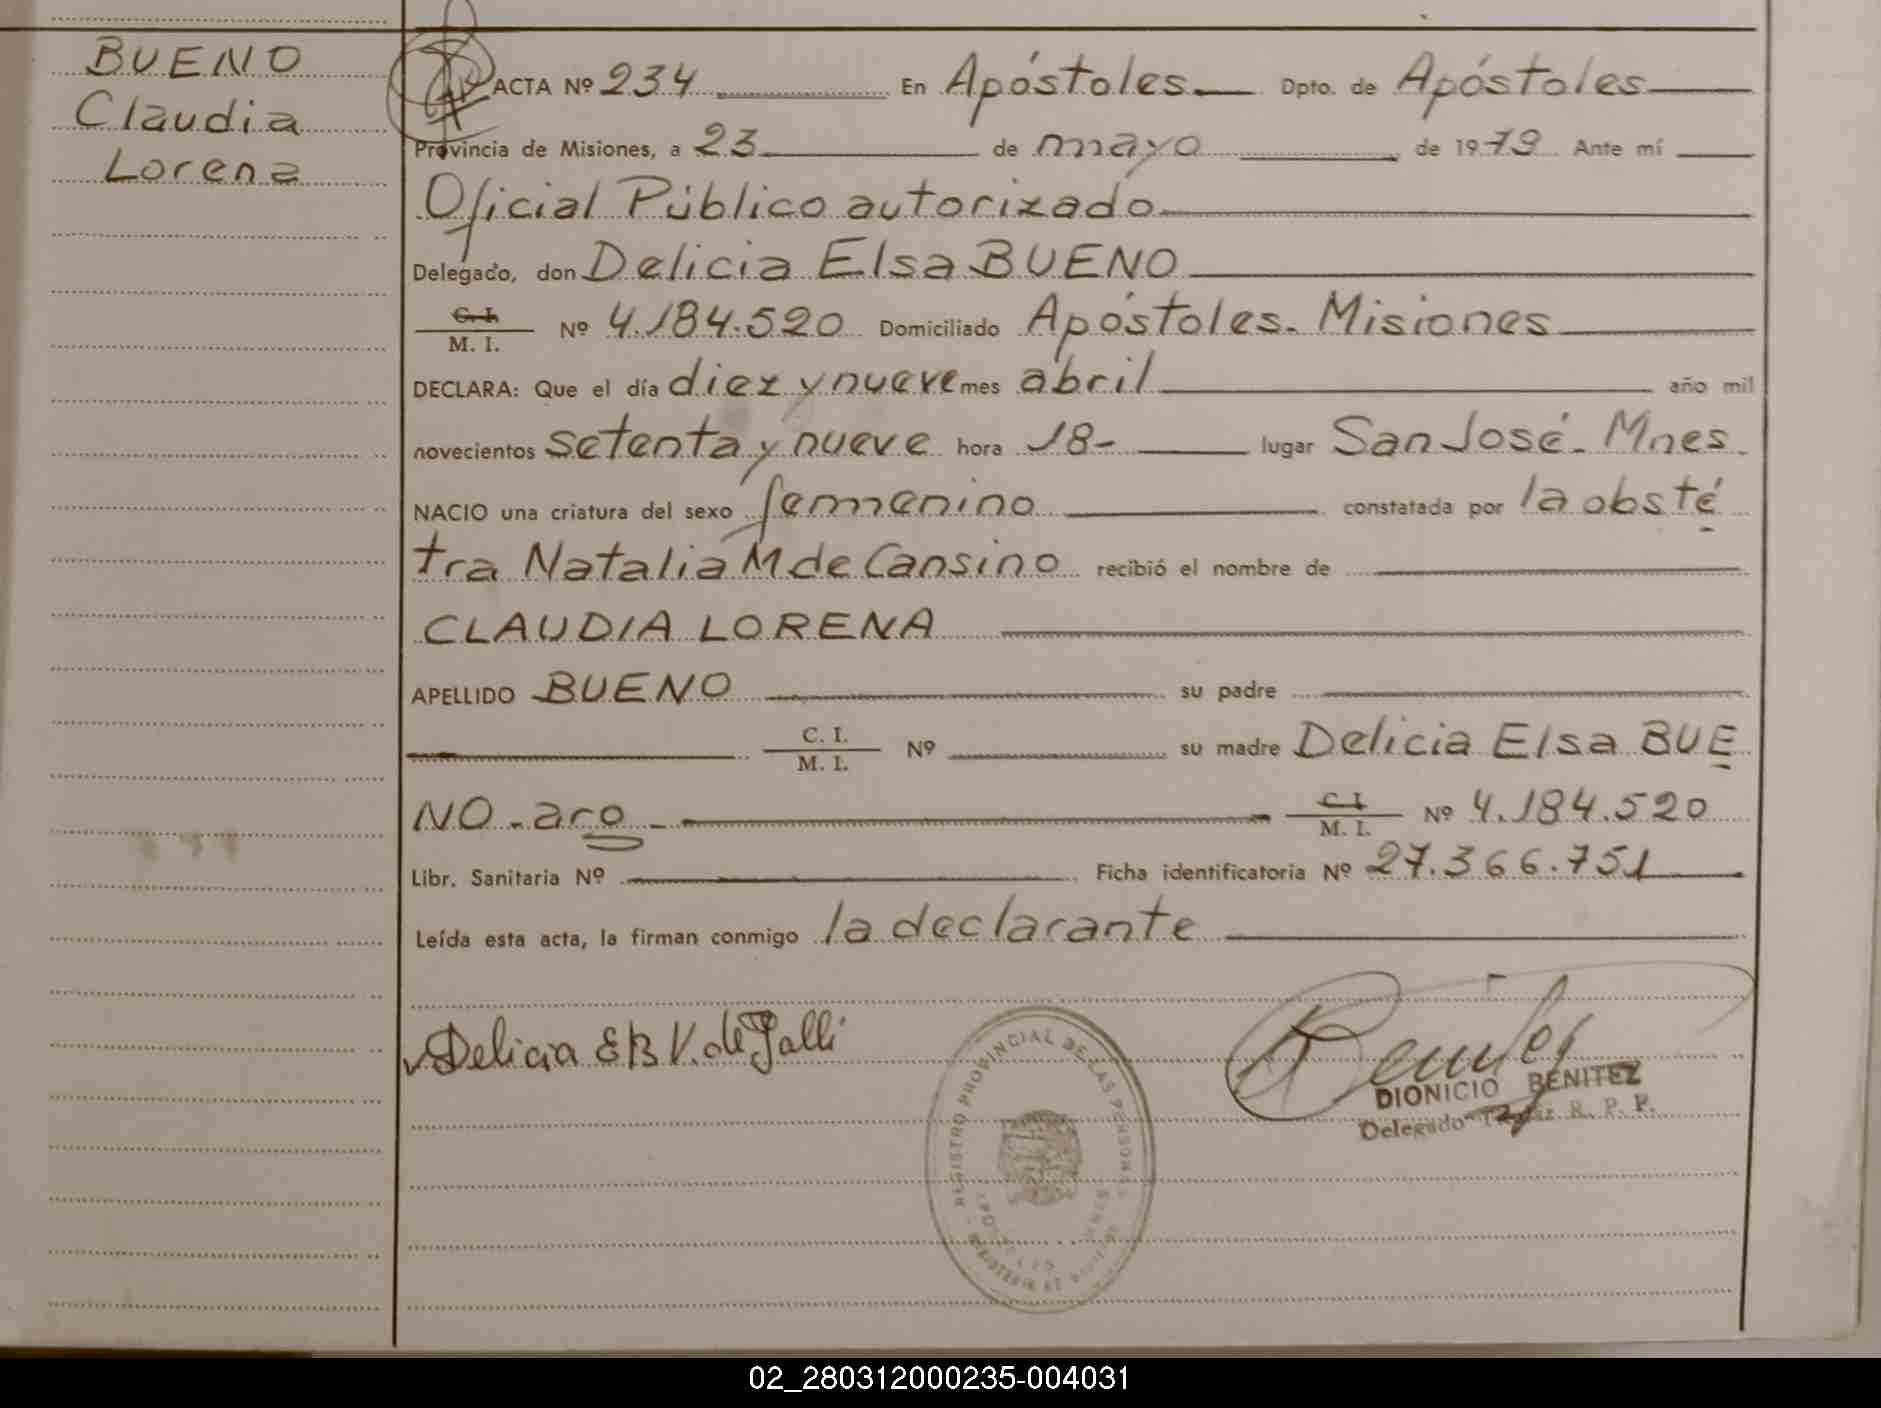 BUENO
Claudia
Lorena
ACTA Nº 234 En Apóstoles Dpto. de Apóstoles
Provincia de Misiones, a 23 de mayo de 1979 Ante mí
Oficial Público autorizado
Delegado, don Delicia Elsa BUENO
C. I.
M. I. Nº 4.184.520 Domiciliado Apóstoles. Misiones
DECLARA: Que el día diez y nueve mes abril año mil
novecientos setenta y nueve hora 18- lugar San José. Mnes.
NACIO una criatura del sexo femenino constatada por la obsté
tra Natalia M de Cansino recibió el nombre de
CLAUDIA LORENA
APELLIDO BUENO su padre
C. I.
M. I. Nº su madre Delicia Elsa BUE
NO - aro - C. I.
M. I. Nº 4.184.520
Libr. Sanitaria Nº Ficha identificatoria Nº 27.366.751
Leída esta acta, la firman conmigo la declarante
Delicia E B V. de Galli
REGISTRO PROVINCIAL DE LAS PERSONAS
DIONICIO BENITEZ
Delegado R. P. P.
02_280312000235-004031